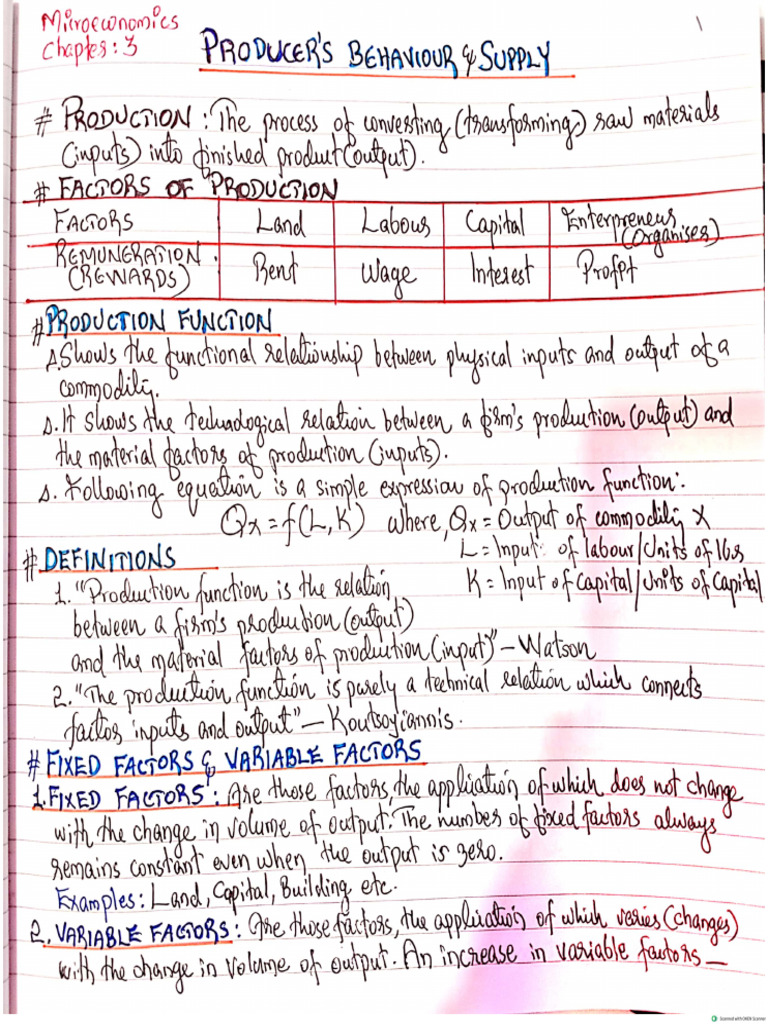 Microeconomics
Chapter: 3
1
PRODUCER'S BEHAVIOUR & SUPPLY
# PRODUCTION : The process of converting (transforming) raw materials
(inputs) into finished product (output).
# FACTORS OF PRODUCTION
FACTORS Land Labour Capital Enterpreneur (Organiser)
REMUNERATION (REWARDS) Rent Wage Interest Profit
# PRODUCTION FUNCTION
s. Shows the functional relationship between physical inputs and output of a
commodity.
s. It shows the technological relation between a firm's production (output) and
the material factors of production (inputs).
s. Following equation is a simple expression of production function:
Qx = f(L, K) where, Qx = Output of commodity X
L = Input of labour/Units of lbr
K = Input of Capital/Units of Capital
# DEFINITIONS
1. "Production function is the relation
between a firm's production (output)
and the material factors of production (input)" – Watson
2. "The production function is purely a technical relation which connects
factor inputs and output" – Koutsoyiannis.
# FIXED FACTORS & VARIABLE FACTORS
1. FIXED FACTORS : Are those factors, the application of which does not change
with the change in volume of output. The number of fixed factors always
remains constant even when the output is zero.
Examples: Land, Capital, Building etc.
2. VARIABLE FACTORS : Are those factors, the application of which veries (changes)
with the change in volume of output. An increase in variable factors —
Scanned with OKEN Scanner